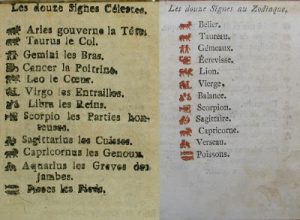 Les douze Signes Célestes.
Aries gouverne la Tête
Taurus le Col.
Gemini les Bras.
Cancer la Poitrine
Leo le Cœur.
Virgo les Entrailles,
Libra les Reins.
Scorpio les Parties hon-
teuses.
Sagittarius les Cuisses.
Capricornus les Genoux.
Aquarius les Greves des
jambes.
Pisces les Pieds.
Les douze Signes au Zodiaque.
Bélier.
Taureau.
Gémeaux.
Écrevisse.
Lion.
Vierge.
Balance.
Scorpion.
Sagittaire.
Capricorne.
Verseau.
Poissons.